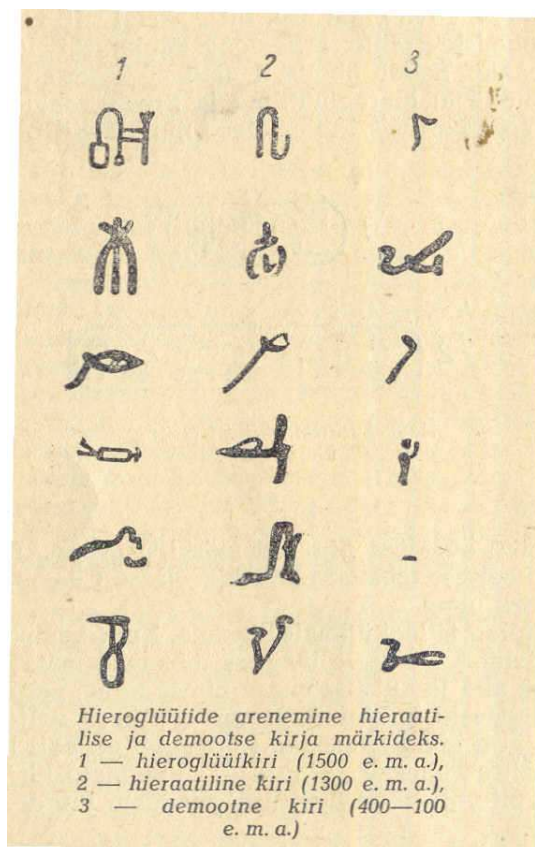 1 2 3
Hieroglüüfide arenemine hieraati-
lise ja demootse kirja märkideks.
1 — hieroglüüfkiri (1500 e. m. a.),
2 — hieraatiline kiri (1300 e. m. a.),
3 — demootne kiri (400—100
e. m. a.)